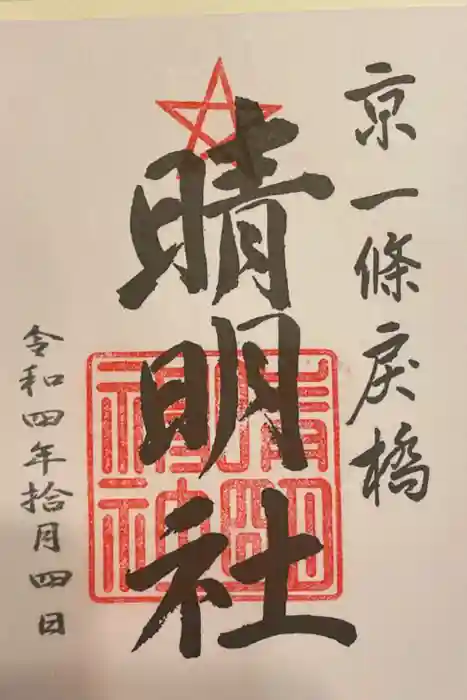 京一條戻橋
晴明社
晴明神社
令和四年拾月四日